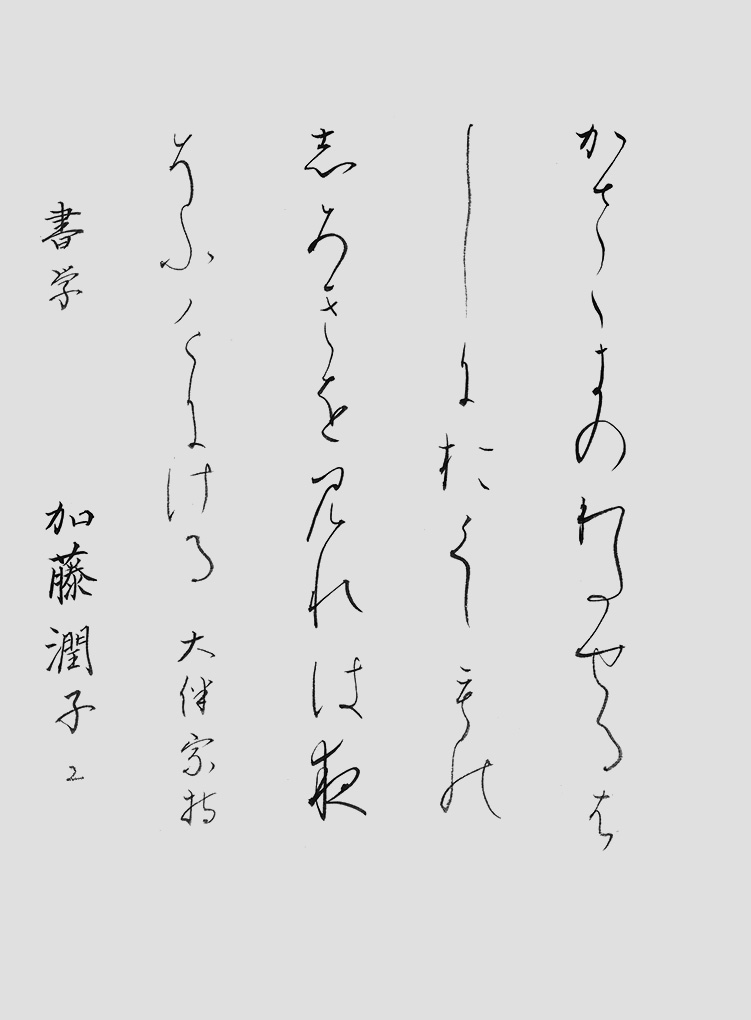 かさゝきの わたせる は
しに おく し毛の
志ろきを 見れは 夜
そふ けに ける 大伴家持
書学 加藤潤子 2